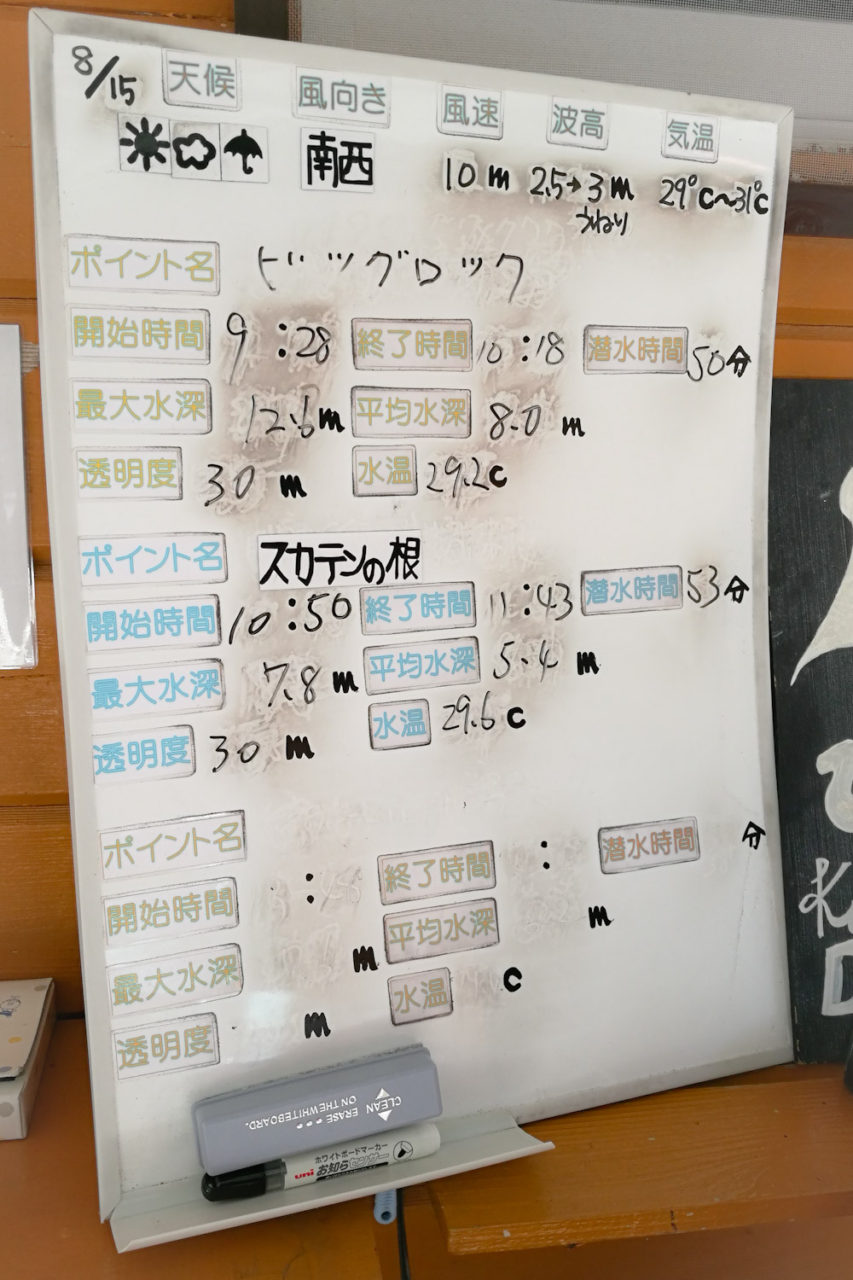 8/15 天候 風向き 風速 波高 気温
南西 10 m 2.5→3 m 29°c〜31°c
うねり
ポイント名 ビッグロック
開始時間 9:28 終了時間 10:18 潜水時間 50分
最大水深 12.6m 平均水深 8.0 m
透明度 30 m 水温 29.2c
ポイント名 スカテンの根
開始時間 10:50 終了時間 11:43 潜水時間 53分
最大水深 7.8m 平均水深 5.4 m
透明度 30 m 水温 29.6 c
ポイント名
開始時間 : 終了時間 : 潜水時間 分
最大水深 m 平均水深 m
透明度 m 水温 c
CLEAN ERASE
ON THE WHITEBOARD.
ホワイトボードマーカー
uni お知らセンサー